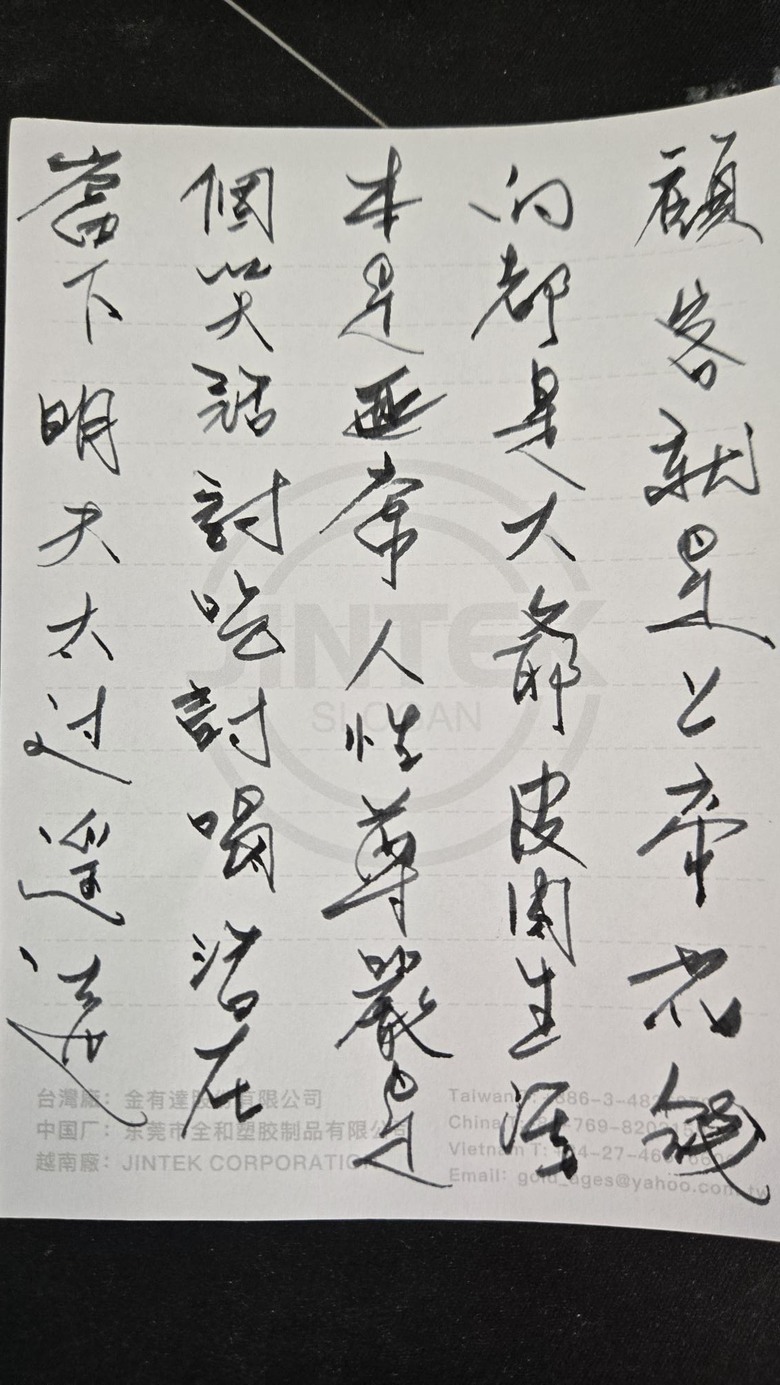 顧客就是上帝花錢
的都是大爺皮肉生涯
本是逢常人性尊嚴是
個笑話討吃討喝活在
當下明天太过遥远
JINTEK
SLOGAN
台灣廠：金有達股份有限公司
中国厂：东莞市全和塑胶制品有限公司
越南廠：JINTEK CORPORATION
Taiwan T: +886-3-48
China T: 86-769-8202
Vietnam T: +84-27-46
Email：gold_ages@yahoo.com.tw